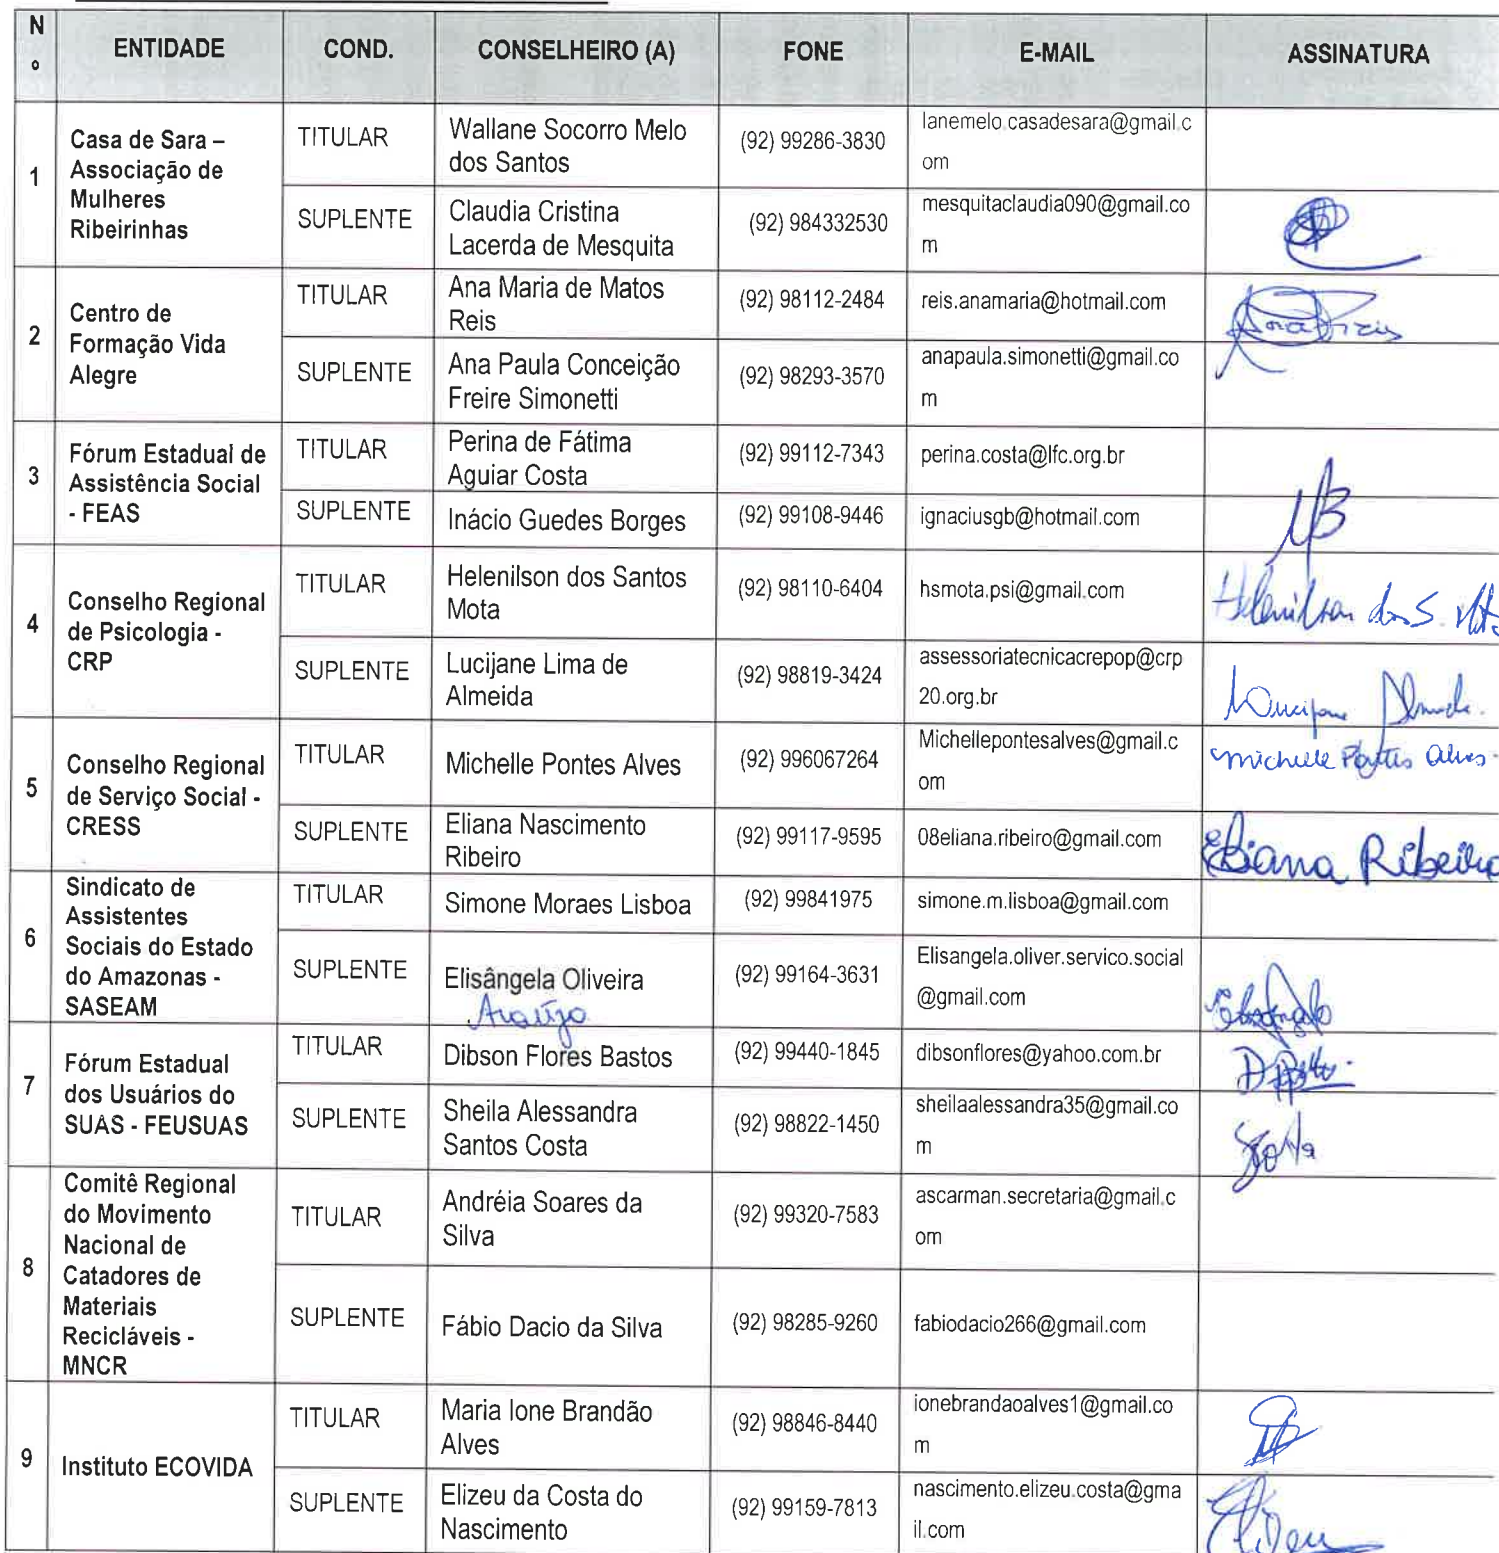 Nº ENTIDADE COND. CONSELHEIRO (A) FONE E-MAIL ASSINATURA
1
Casa de Sara –
Associação de
Mulheres
Ribeirinhas
TITULAR
Wallane Socorro Melo
dos Santos
(92) 99286-3830
lanemelo.casadesara@gmail.c
om
SUPLENTE
Claudia Cristina
Lacerda de Mesquita
(92) 984332530
mesquitaclaudia090@gmail.co
m
2
Centro de
Formação Vida
Alegre
TITULAR
Ana Maria de Matos
Reis
(92) 98112-2484
reis.anamaria@hotmail.com
SUPLENTE
Ana Paula Conceição
Freire Simonetti
(92) 98293-3570
anapaula.simonetti@gmail.co
m
3
Fórum Estadual de
Assistência Social
- FEAS
TITULAR
Perina de Fátima
Aguiar Costa
(92) 99112-7343
perina.costa@lfc.org.br
SUPLENTE
Inácio Guedes Borges
(92) 99108-9446
ignaciusgb@hotmail.com
4
Conselho Regional
de Psicologia -
CRP
TITULAR
Helenilson dos Santos
Mota
(92) 98110-6404
hsmota.psi@gmail.com
Helenilson dos S.
SUPLENTE
Lucijane Lima de
Almeida
(92) 98819-3424
assessoriatecnicacrepop@crp
20.org.br
Lucijane Almeida.
5
Conselho Regional
de Serviço Social -
CRESS
TITULAR
Michelle Pontes Alves
(92) 996067264
Michellepontesalves@gmail.c
om
Michelle Pontes Alves
SUPLENTE
Eliana Nascimento
Ribeiro
(92) 99117-9595
08eliana.ribeiro@gmail.com
Eliana Ribeiro
6
Sindicato de
Assistentes
Sociais do Estado
do Amazonas -
SASEAM
TITULAR
Simone Moraes Lisboa
(92) 99841975
simone.m.lisboa@gmail.com
SUPLENTE
Elisângela Oliveira
Araújo
(92) 99164-3631
Elisangela.oliver.servico.social
@gmail.com
Elisângela
7
Fórum Estadual
dos Usuários do
SUAS - FEUSUAS
TITULAR
Dibson Flores Bastos
(92) 99440-1845
dibsonflores@yahoo.com.br
SUPLENTE
Sheila Alessandra
Santos Costa
(92) 98822-1450
sheilaalessandra35@gmail.co
m
8
Comitê Regional
do Movimento
Nacional de
Catadores de
Materiais
Recicláveis -
MNCR
TITULAR
Andréia Soares da
Silva
(92) 99320-7583
ascarman.secretaria@gmail.c
om
SUPLENTE
Fábio Dacio da Silva
(92) 98285-9260
fabiodacio266@gmail.com
9
Instituto ECOVIDA
TITULAR
Maria Ione Brandão
Alves
(92) 98846-8440
ionebrandaoalves1@gmail.co
m
SUPLENTE
Elizeu da Costa do
Nascimento
(92) 99159-7813
nascimento.elizeu.costa@gma
il.com
Elizeu